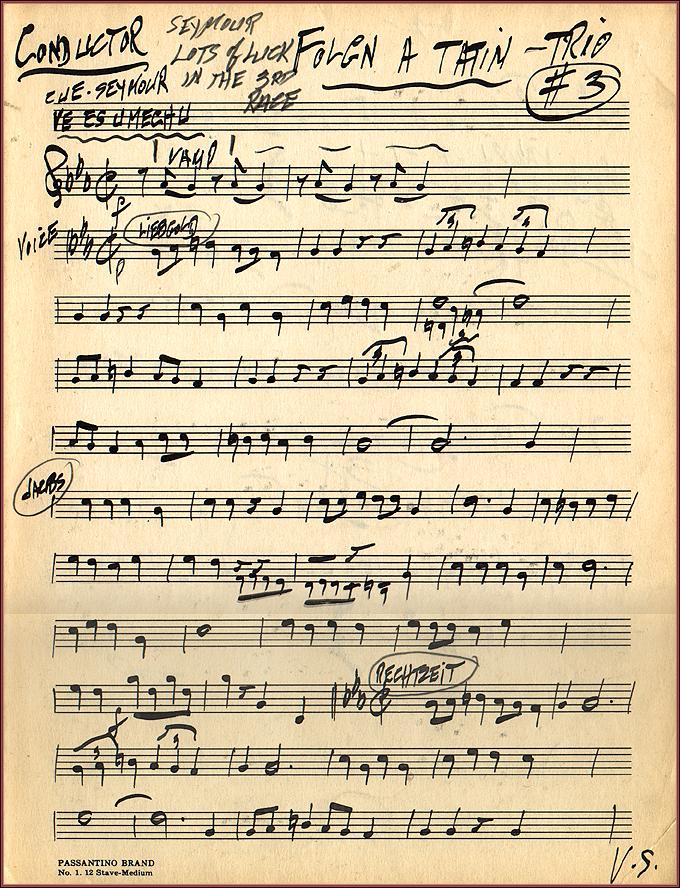 CONDUCTOR
SEYMOUR
LOTS of LUCK
IN THE 3RD
RACE
FOLGN A TATIN - TRIO
#3
CUE - SEYMOUR
VE ES UMECHU
VAMP
VOICE
LIEBGOLD
JACOBS
RECHTZEIT
V.S.
PASSANTINO BRAND
No. 1. 12 Stave-Medium